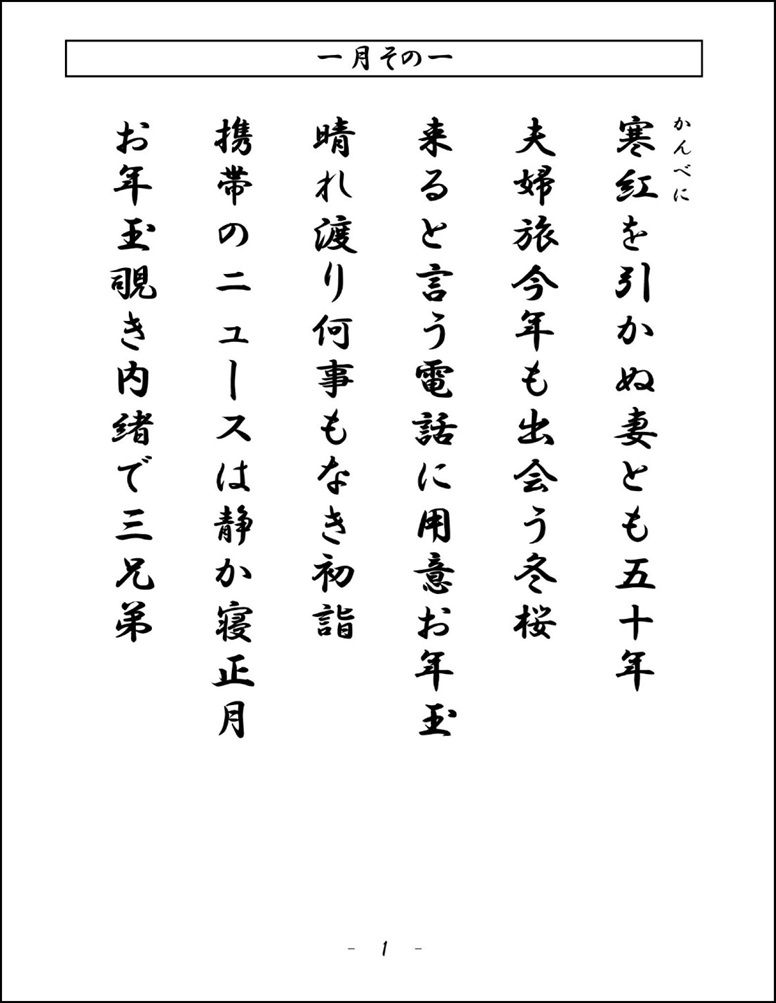 一月その一
かんべに
寒紅を引かぬ妻とも五十年
夫婦旅今年も出会う冬桜
来ると言う電話に用意お年玉
晴れ渡り何事もなき初詣
携帯のニュースは静か寝正月
お年玉覗き内緒で三兄弟
- 1 -